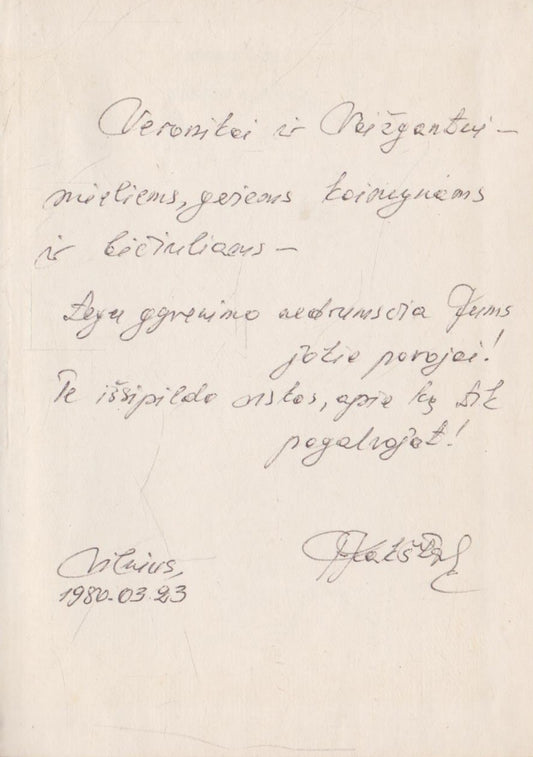 Veronikai ir Vaižgantui –
mieliems, geriems kaimynams
ir bičiuliams –
tegu gyvenimo nedrumsčia Jums
jokie pavojai!
Te išsipildo viskas, apie ką tik
pagalvojat!
Vilnius,
1980.03.23